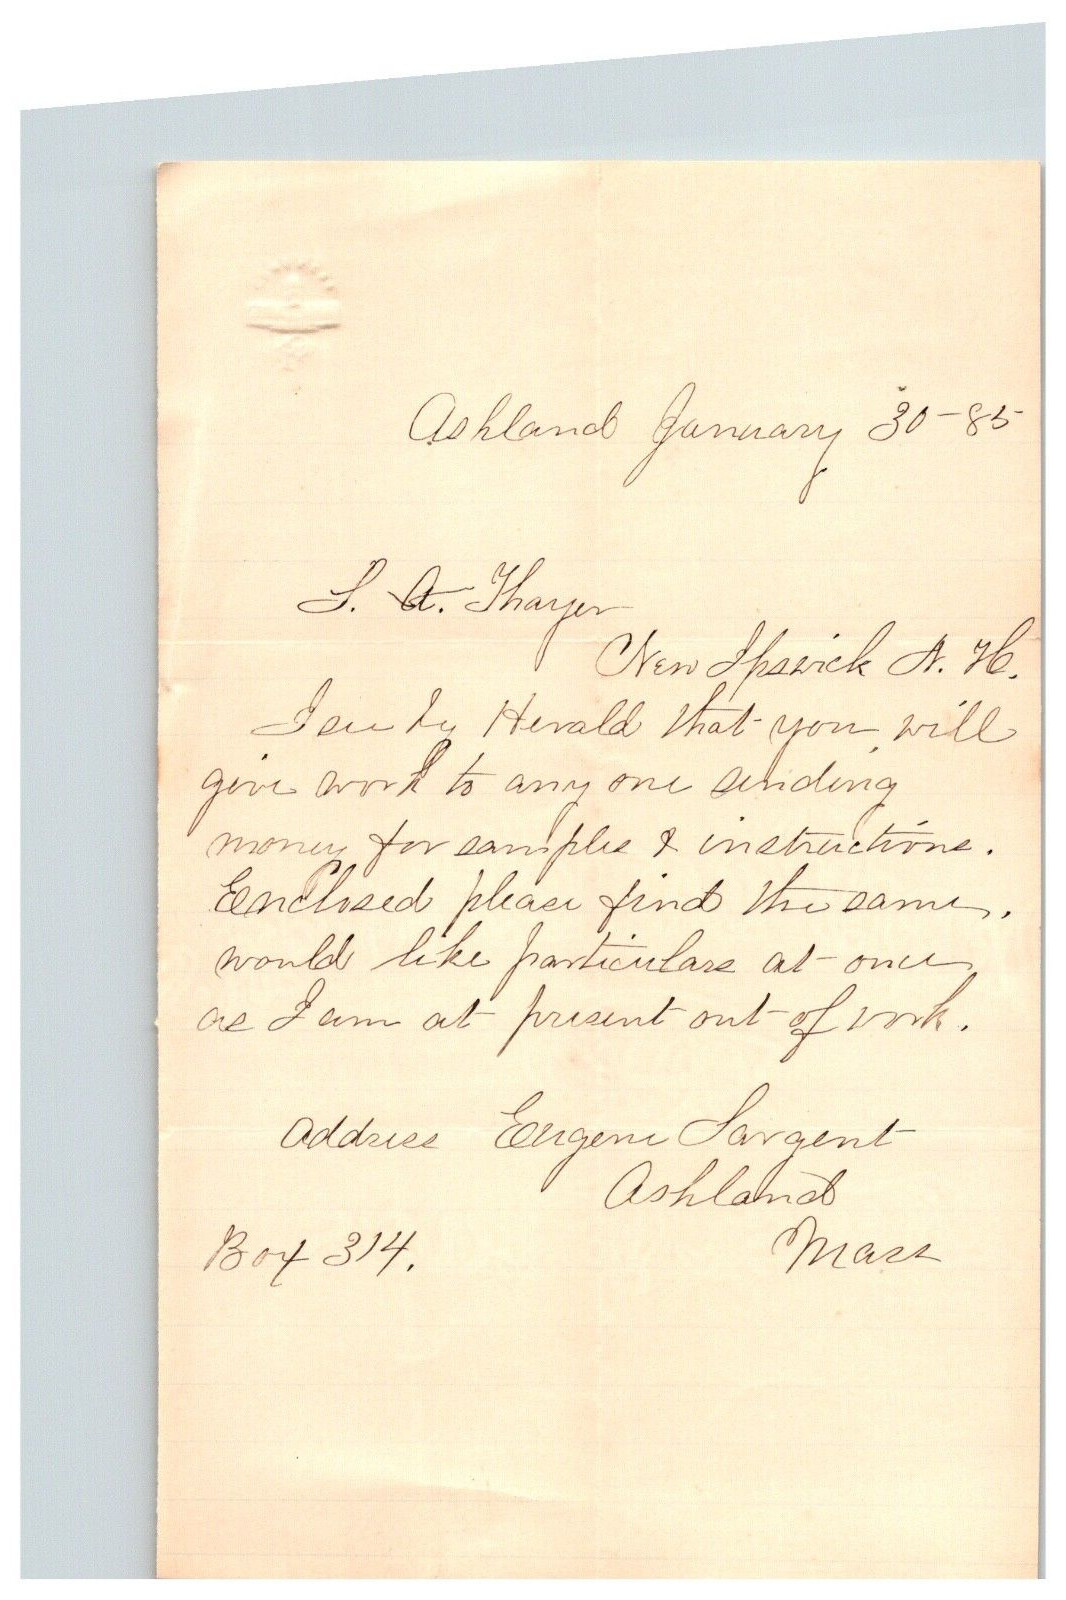 Ashland January 30-85
S. A. Thayer
New Ipswick N. H.
I see by Herald that you will
give work to any one sending
money for samples & instructions.
Enclosed please find the same.
would like particulars at once
as I am at present out of work.
Address Eugene Sargent
Ashland
Box 314. Mass